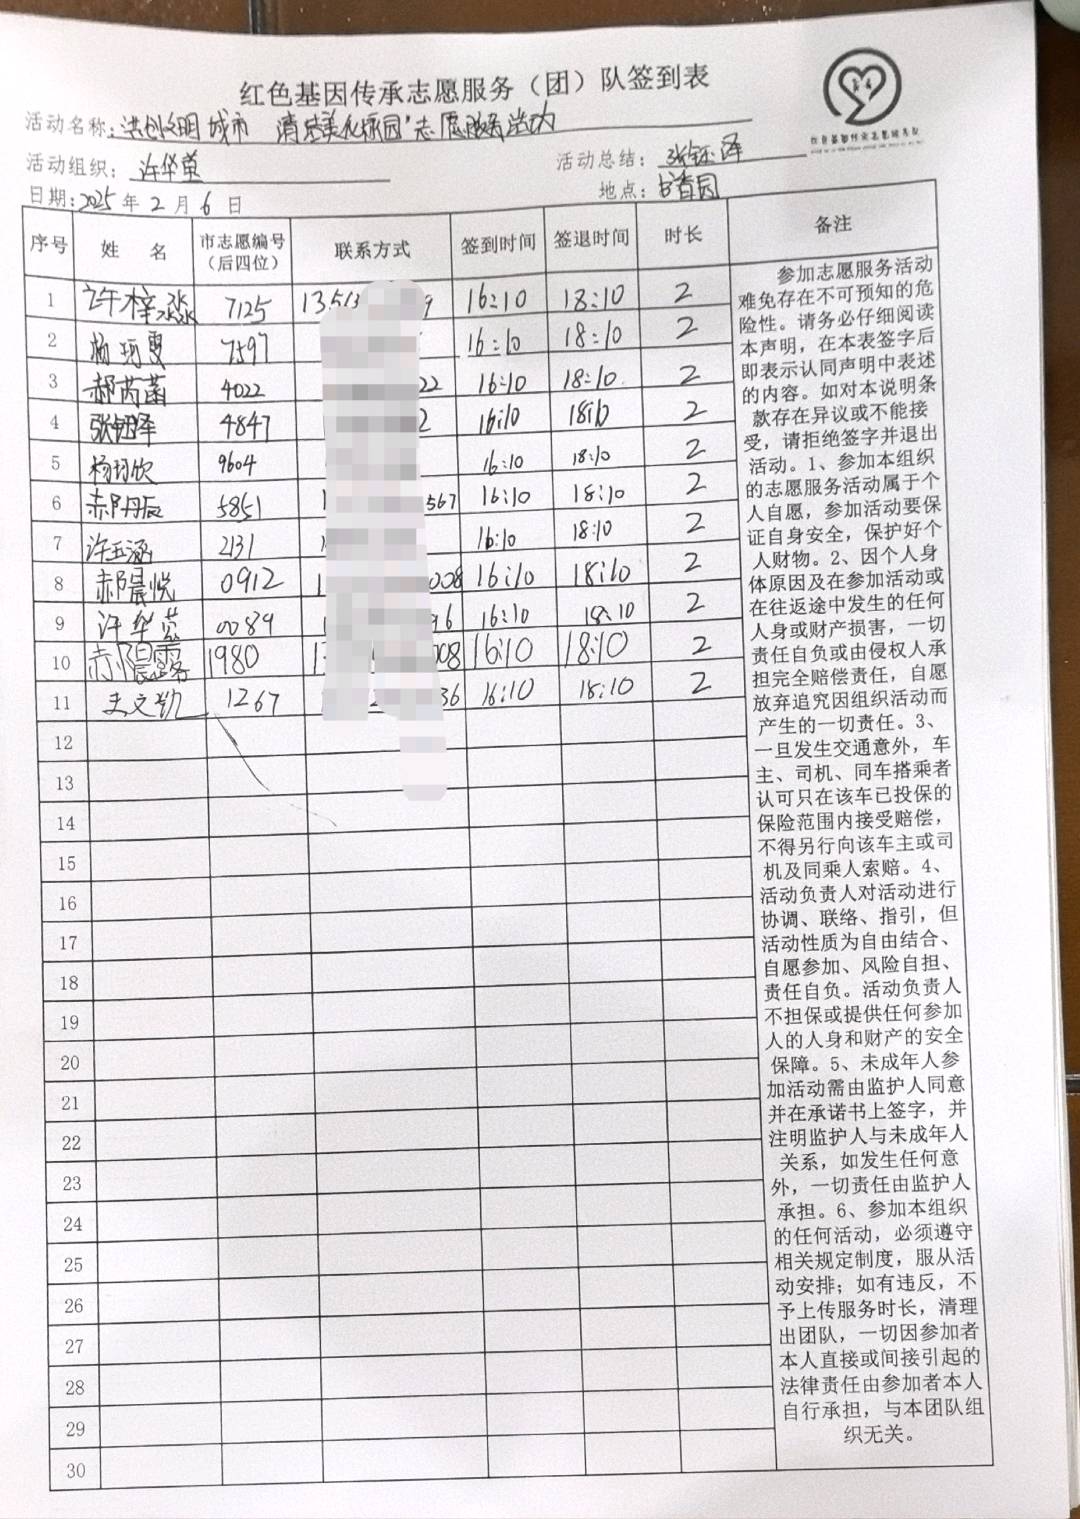 红色基因传承志愿服务（团）队签到表
活动名称：共创文明城市 清洁美化家园"志愿服务活动
活动组织：许华
活动总结：张钰泽
日期：2025年2月6日
地点：书香园
序号 姓 名 市志愿编号（后四位） 联系方式 签到时间 签退时间 时长 备注
1 许梓淼 7125 13513 9 16:10 18:10 2
2 杨珂雯 7597 16:10 18:10 2
3 郝芮菡 4022 22 16:10 18:10 2
4 张钰泽 4847 2 16:10 18:10 2
5 杨珂欣 9604 16:10 18:10 2
6 郝丹辰 5851 1 567 16:10 18:10 2
7 许玉涵 2131 1 16:10 18:10 2
8 郝晨悦 0912 1 008 16:10 18:10 2
9 许华 0089 1 96 16:10 18:10 2
10 郝晨露 1980 1 008 16:10 18:10 2
11 王文凯 1267 36 16:10 18:10 2
12
13
14
15
16
17
18
19
20
21
22
23
24
25
26
27
28
29
30
参加志愿服务活动
难免存在不可预知的危
险性。请务必仔细阅读
本声明，在本表签字后
即表示认同声明中表述
的内容。如对本说明条
款存在异议或不能接
受，请拒绝签字并退出
活动。1、参加本组织
的志愿服务活动属于个
人自愿，参加活动要保
证自身安全，保护好个
人财物。2、因个人身
体原因及在参加活动或
在往返途中发生的任何
人身或财产损害，一切
责任自负或由侵权人承
担完全赔偿责任，自愿
放弃追究因组织活动而
产生的一切责任。3、
一旦发生交通意外，车
主、司机、同车搭乘者
认可只在该车已投保的
保险范围内接受赔偿，
不得另行向该车主或司
机及同乘人索赔。4、
活动负责人对活动进行
协调、联络、指引，但
活动性质为自由结合、
自愿参加、风险自担、
责任自负。活动负责人
不担保或提供任何参加
人的人身和财产的安全
保障。5、未成年人参
加活动需由监护人同意
并在承诺书上签字，并
注明监护人与未成年人
关系，如发生任何意
外，一切责任由监护人
承担。6、参加本组织
的任何活动，必须遵守
相关规定制度，服从活
动安排；如有违反，不
予上传服务时长，清理
出团队，一切因参加者
本人直接或间接引起的
法律责任由参加者本人
自行承担，与本团队组
织无关。